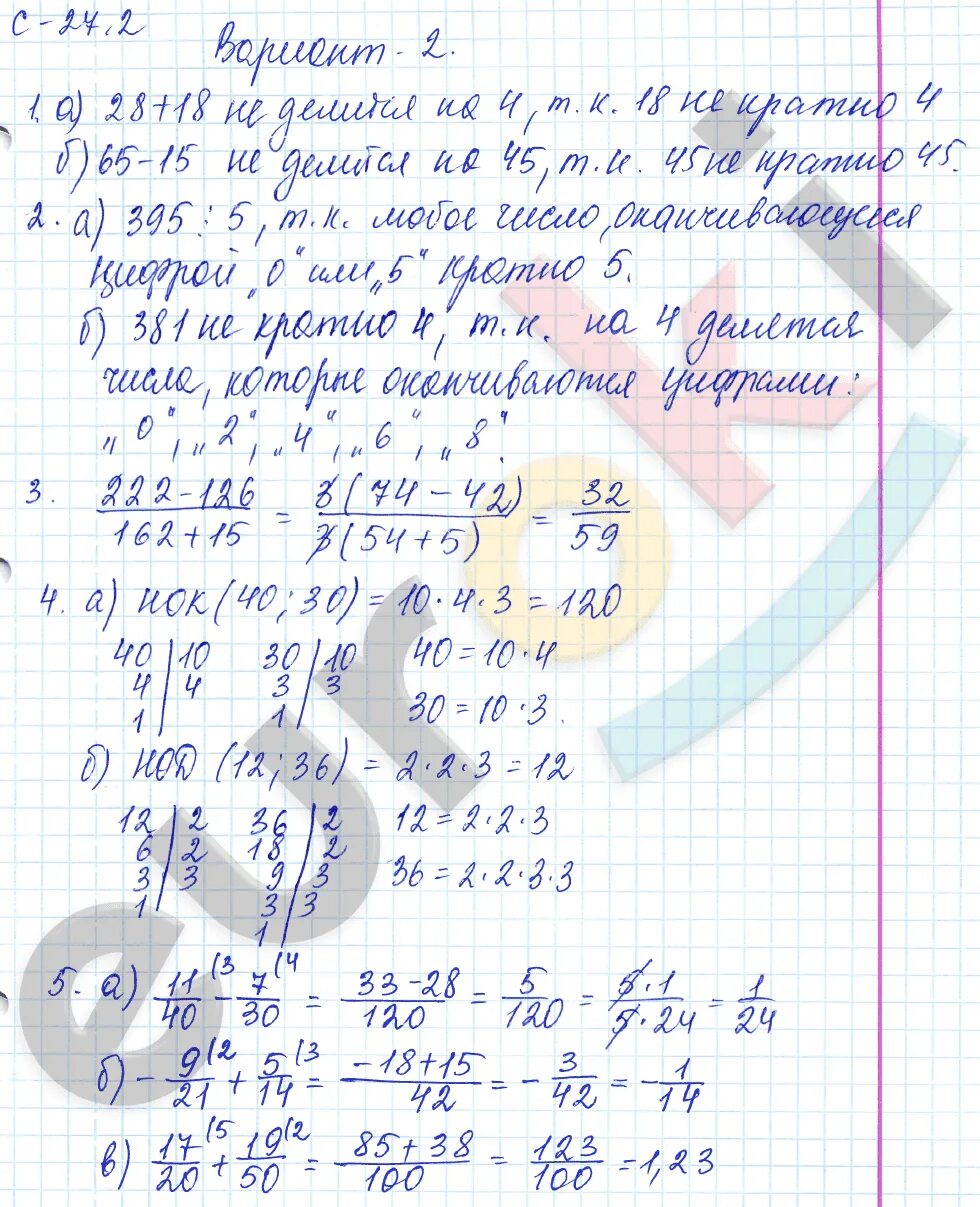 С-27.2
Вариант - 2.
1. а) 28+18 не делится на 4, т.к. 18 не кратно 4
б) 65-15 не делится на 45, т.к. 45 не кратно 45.
2. а) 395 ⋮ 5, т.к. любое число, оканчивающуеся
цифрой „0" или „5" кратно 5.
б) 381 не кратно 4, т.к. на 4 делятся
числа, которые оканчиваются цифрами:
„0", „2", „4", „6", „8".
3. 222-126 / 162+15 = 3(74-42) / 3(54+5) = 32/59
4. а) НОК (40; 30) = 10·4·3 = 120
40 | 10 30 | 10 40 = 10·4
4 | 4 3 | 3
1 | 1 | 30 = 10·3.
б) НОД (12; 36) = 2·2·3 = 12
12 | 2 36 | 2 12 = 2·2·3
6 | 2 18 | 2
3 | 3 9 | 3 36 = 2·2·3·3
1 | 3 | 3
1 |
5. а) 11/40 (3 - 7/30 (4 = 33-28/120 = 5/120 = 5·1/5·24 = 1/24
б) -9/21 (2 + 5/14 (3 = -18+15/42 = -3/42 = -1/14
в) 17/20 (5 + 19/50 (2 = 85+38/100 = 123/100 = 1,23
euroki